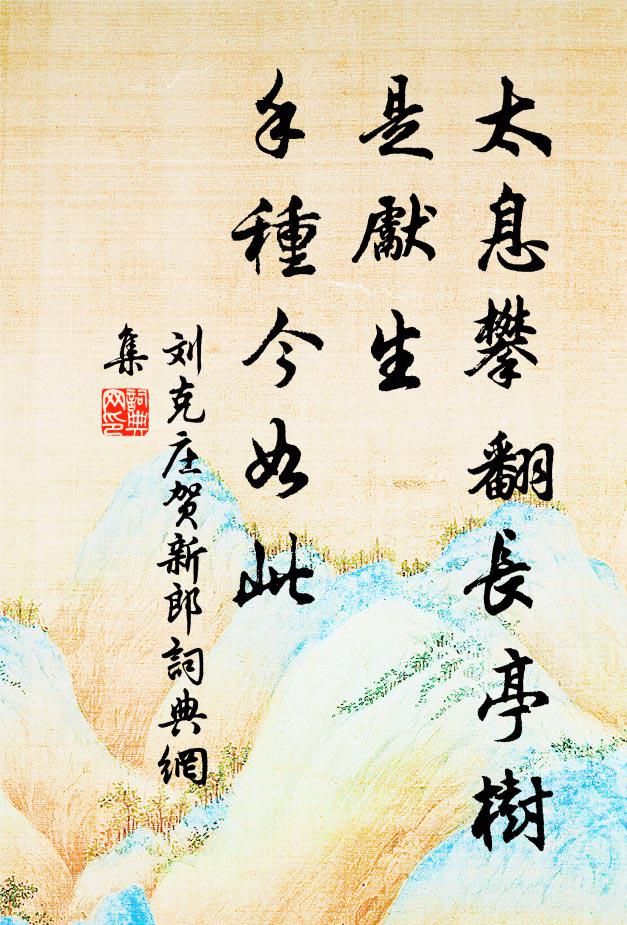 太息攀翻長亭樹
是獻生
手種今如此
刘克庄贺新郎詞典網
集
詞典
网印